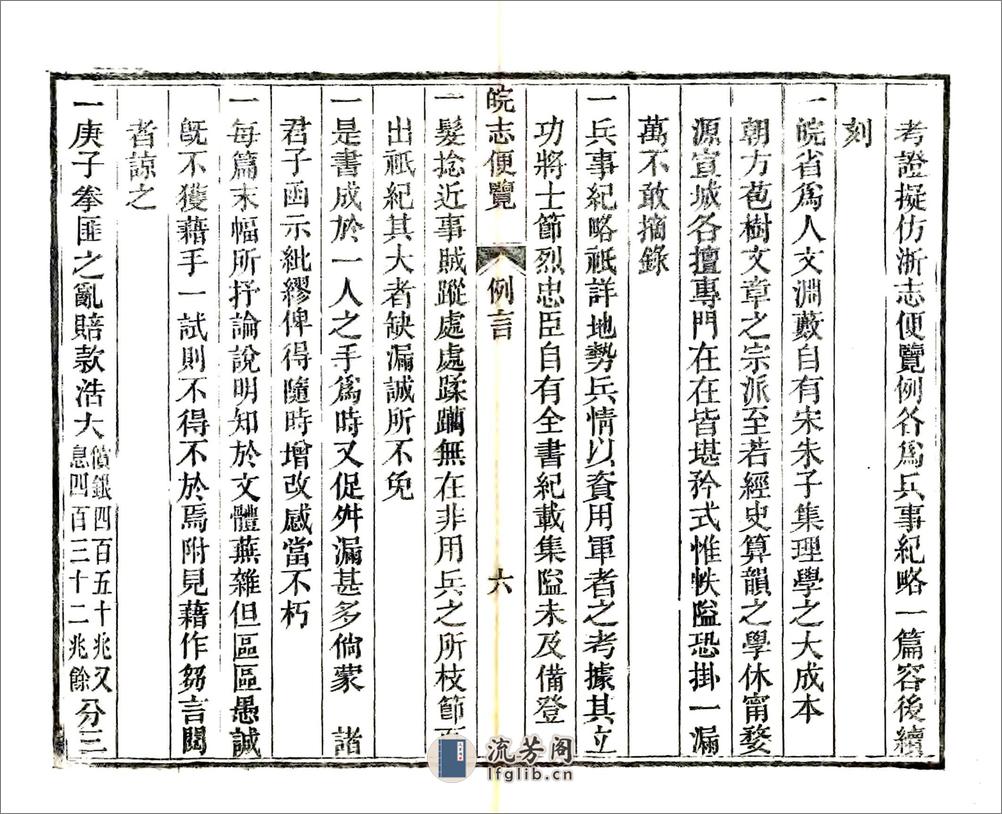 考證擬仿浙志便覽例各爲兵事紀略一篇容後續
刻
一皖省爲人文淵藪自有宋朱子集理學之大成本
朝方苞樹文章之宗派至若經史算韻之學休甯婺
源宣城各擅專門在在皆堪矜式惟帙隘恐掛一漏
萬不敢摘錄
一兵事紀略祇詳地勢兵情以資用軍者之考據其立
功將士節烈忠臣自有全書紀載集隘未及備登
皖志便覽 例言 六
一髮捻近事賊蹤處處蹂躪無在非用兵之所枝節
出祇紀其大者缺漏誠所不免
一是書成於一人之手爲時又促舛漏甚多倘蒙 諸
君子函示紕繆俾得隨時增改感當不朽
一每篇末幅所抒論說明知於文體蕪雜但區區愚誠
旣不獲藉手一試則不得不於焉附見藉作芻言閱
者諒之
一庚子拳匪之亂賠款浩大償銀四百五十兆又息四百三十二兆餘分三
流芳阁
lfglib.cn